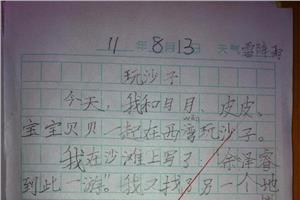 11年8月13日 天气雷阵雨
玩沙子
今天,我和月月、皮皮、
wān
宝宝贝贝一起在西湾玩沙子。
我在沙滩上写了“余泽睿
到此一游”我又找了另一个地